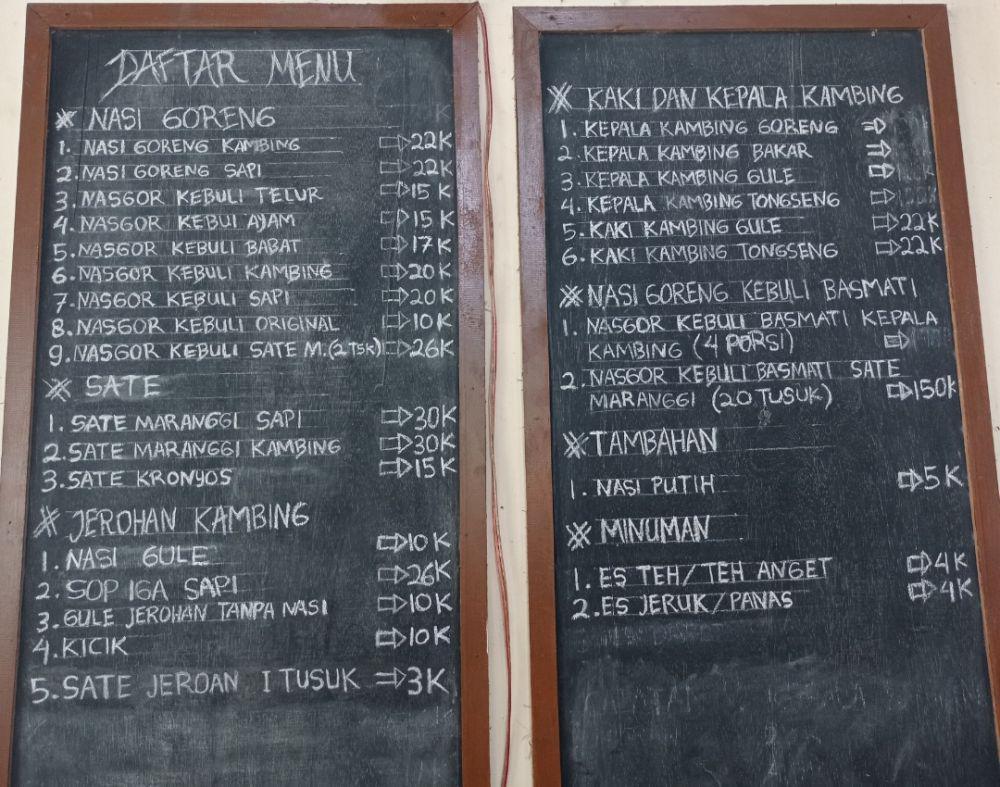 DAFTAR MENU
※ NASI GORENG
1. NASI GORENG KAMBING ⇨ 22K
2. NASI GORENG SAPI ⇨ 22K
3. NASGOR KEBULI TELUR ⇨ 15K
4. NASGOR KEBUI AYAM ⇨ 15K
5. NASGOR KEBULI BABAT ⇨ 17K
6. NASGOR KEBULI KAMBING ⇨ 20K
7. NASGOR KEBULI SAPI ⇨ 20K
8. NASGOR KEBULI ORIGINAL ⇨ 10K
9. NASGOR KEBULI SATE M. (2 TSK) ⇨ 26K
※ SATE
1. SATE MARANGGI SAPI ⇨ 30K
2. SATE MARANGGI KAMBING ⇨ 30K
3. SATE KRONYOS ⇨ 15K
※ JEROHAN KAMBING
1. NASI GULE ⇨ 10K
2. SOP IGA SAPI ⇨ 26K
3. GULE JEROHAN TANPA NASI ⇨ 10K
4. KICIK ⇨ 10K
5. SATE JEROAN 1 TUSUK ⇨ 3K
※ KAKI DAN KEPALA KAMBING
1. KEPALA KAMBING GORENG ⇨
2. KEPALA KAMBING BAKAR ⇨
3. KEPALA KAMBING GULE ⇨
4. KEPALA KAMBING TONGSENG ⇨
5. KAKI KAMBING GULE ⇨ 22K
6. KAKI KAMBING TONGSENG ⇨ 22K
※ NASI GORENG KEBULI BASMATI
1. NASGOR KEBULI BASMATI KEPALA
KAMBING (4 PORSI) ⇨
2. NASGOR KEBULI BASMATI SATE
MARANGGI (20 TUSUK) ⇨ 150K
※ TAMBAHAN
1. NASI PUTIH ⇨ 5K
※ MINUMAN
1. ES TEH/TEH ANGET ⇨ 4K
2. ES JERUK/PANAS ⇨ 4K